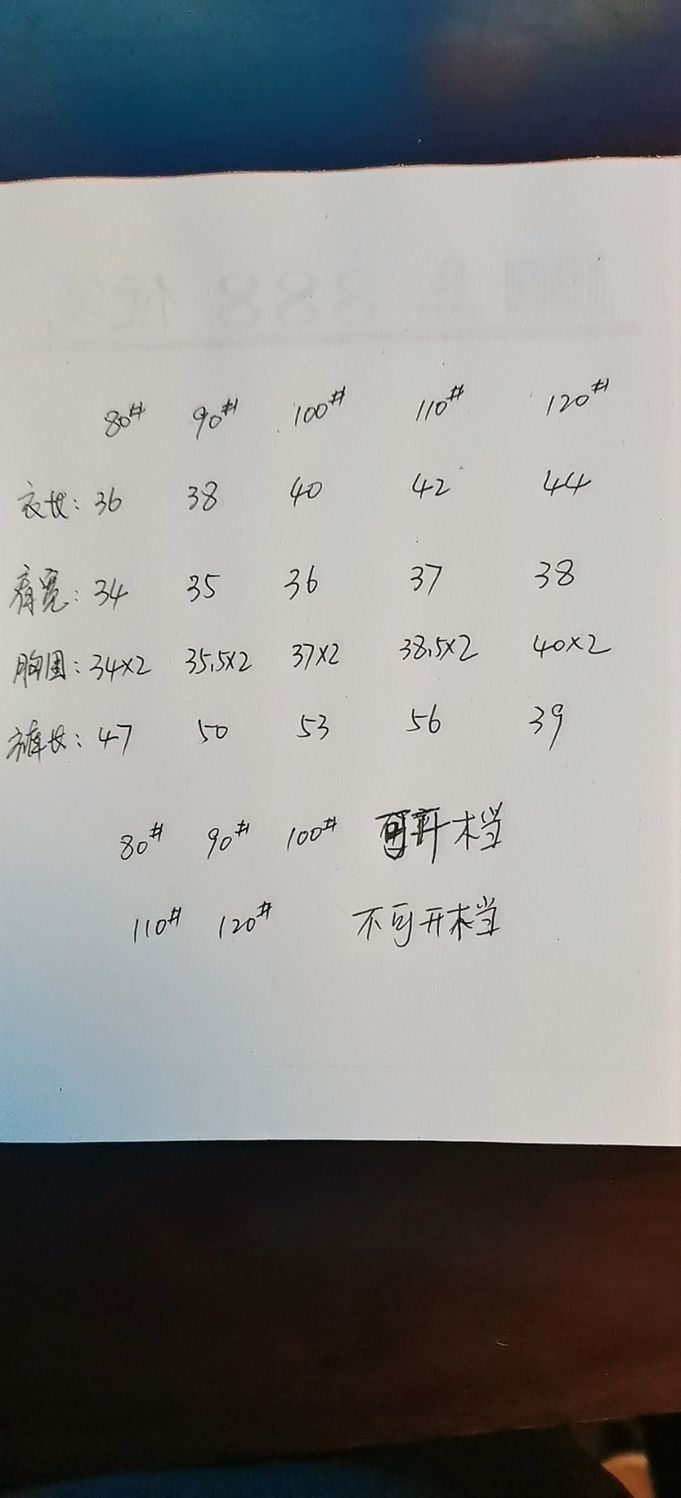 80# 90# 100# 110# 120#
衣长: 36 38 40 42 44
肩宽: 34 35 36 37 38
胸围: 34×2 35.5×2 37×2 38.5×2 40×2
裤长: 47 50 53 56 39
80# 90# 100# 可开档
110# 120# 不可开档